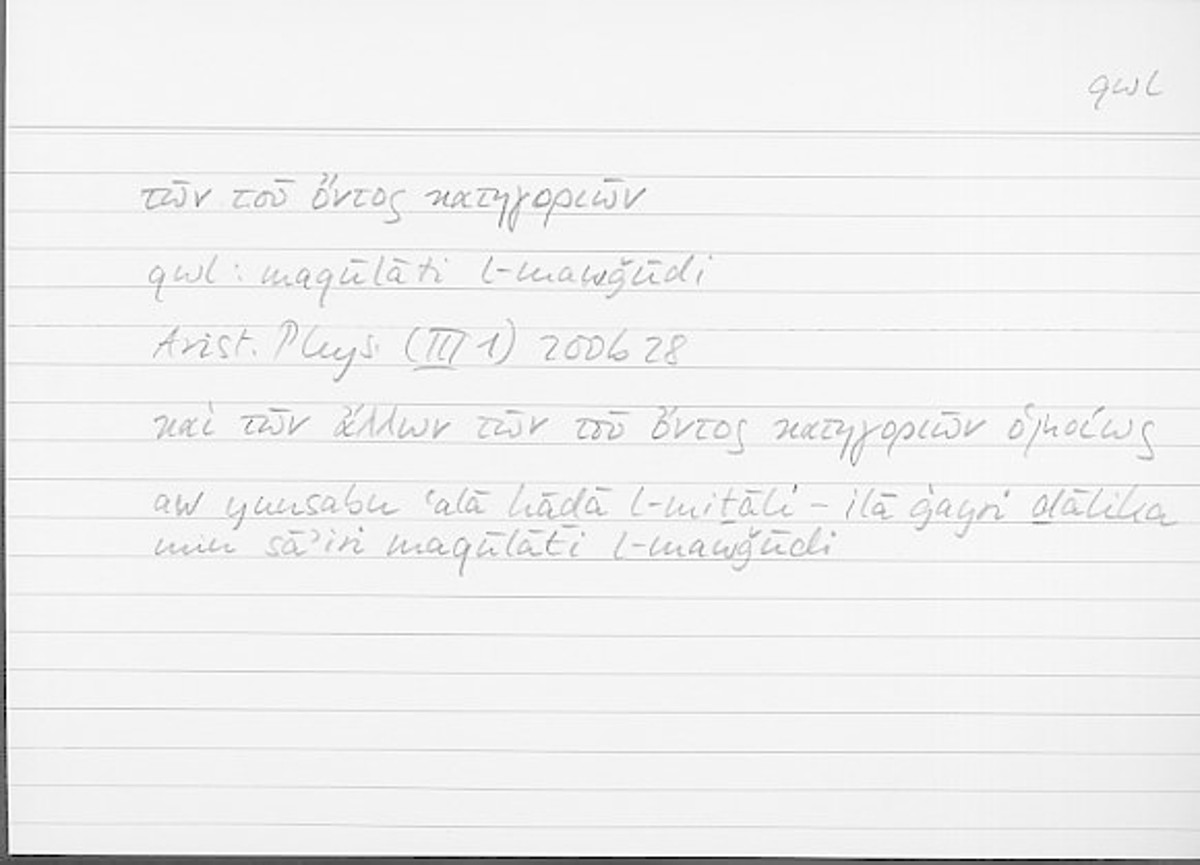 qwl
τῶν τοῦ ὄντος κατηγοριῶν
qwl: maqūlāti l-mawǧūdi
Arist. Phys. (III 1) 200b28
καὶ τῶν ἄλλων τῶν τοῦ ὄντος κατηγοριῶν ὁμοίως
aw yunsabu ʿalā hāḏā l-miṯāli – ilā ġayri ḏālika
min sāʾiri maqūlāti l-mawǧūdi